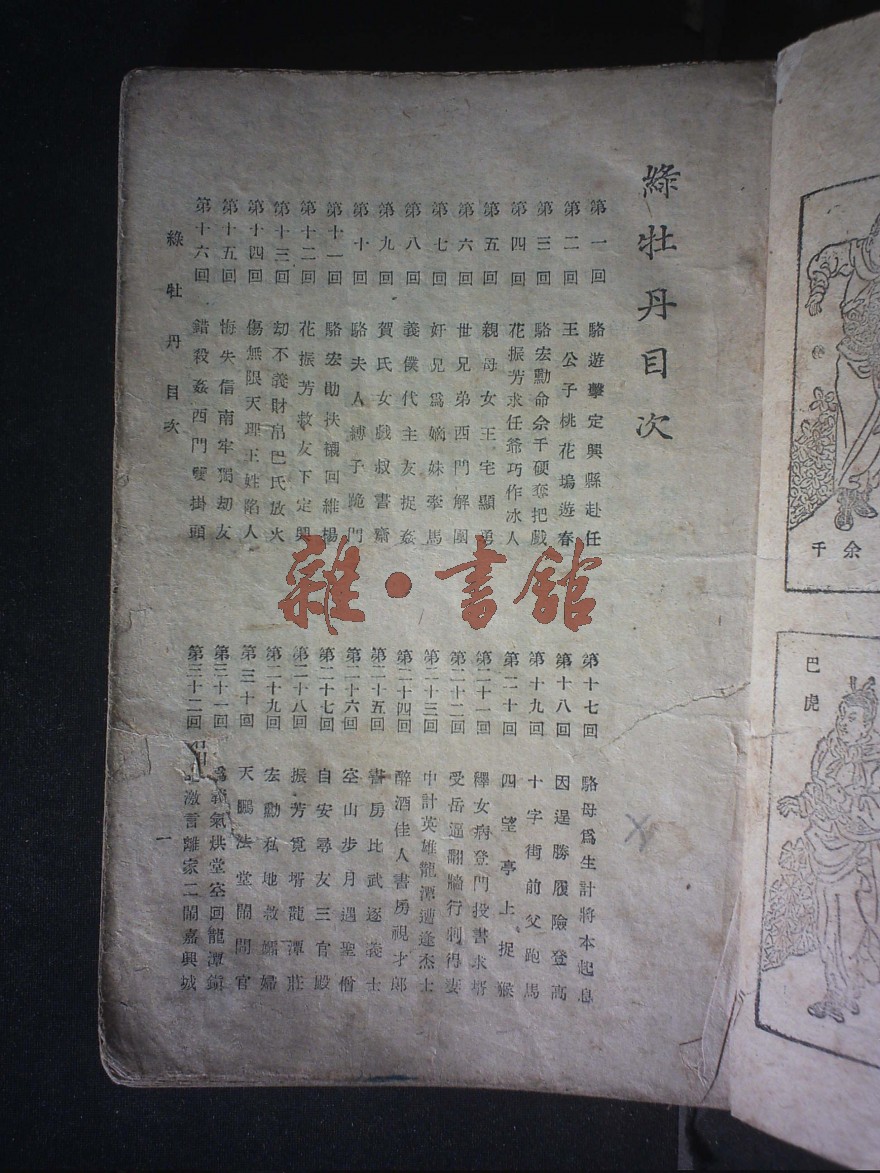 綠牡丹目次
第一回 駱遊擊定興縣赴任
第二回 王公子桃花塢遊春
第三回 駱宏勳命余千硬奪把戲
第四回 花振芳求任爺巧作冰人
第五回 親母女王宅顯勇
第六回 世兄弟西門解圍
第七回 奸兄爲嫡妹牽馬
第八回 義僕代主友捉姦
第九回 賀氏女戲叔書齋
第十回 駱夫人縛子跪門
第十一回 駱宏勛扶櫬回維楊
第十二回 花振芳救友下定興
第十三回 劫不義財帛巴氏放火
第十四回 傷無限天理王姓陷人
第十五回 悔失信南牢獨劫友
第十六回 錯殺姦西門雙掛頭
第十七回 駱母爲生計將本起息
第十八回 因逞勝履險登高
第十九回 十字街前父跑馬
第二十回 四望亭上捉猴
第二十一回 釋女病登門投書求壻
第二十二回 受岳逼翻牆行刺得妻
第二十三回 中計英雄龍潭遭逢杰士
第二十四回 醉酒佳人書房視才郎
第二十五回 書房比武逐義士
第二十六回 空山步月遇聖僧
第二十七回 自安尋友三官殿
第二十八回 振芳覓壻龍潭莊
第二十九回 宏勳私地救孀婦
第三十回 天鵬法堂鬧問官
第三十一回 爲義氣烘堂空回龍潭鎭
第三十二回 激言離家二鬧嘉興城
綠牡丹目次
一
余千
巴虎
雜·書館